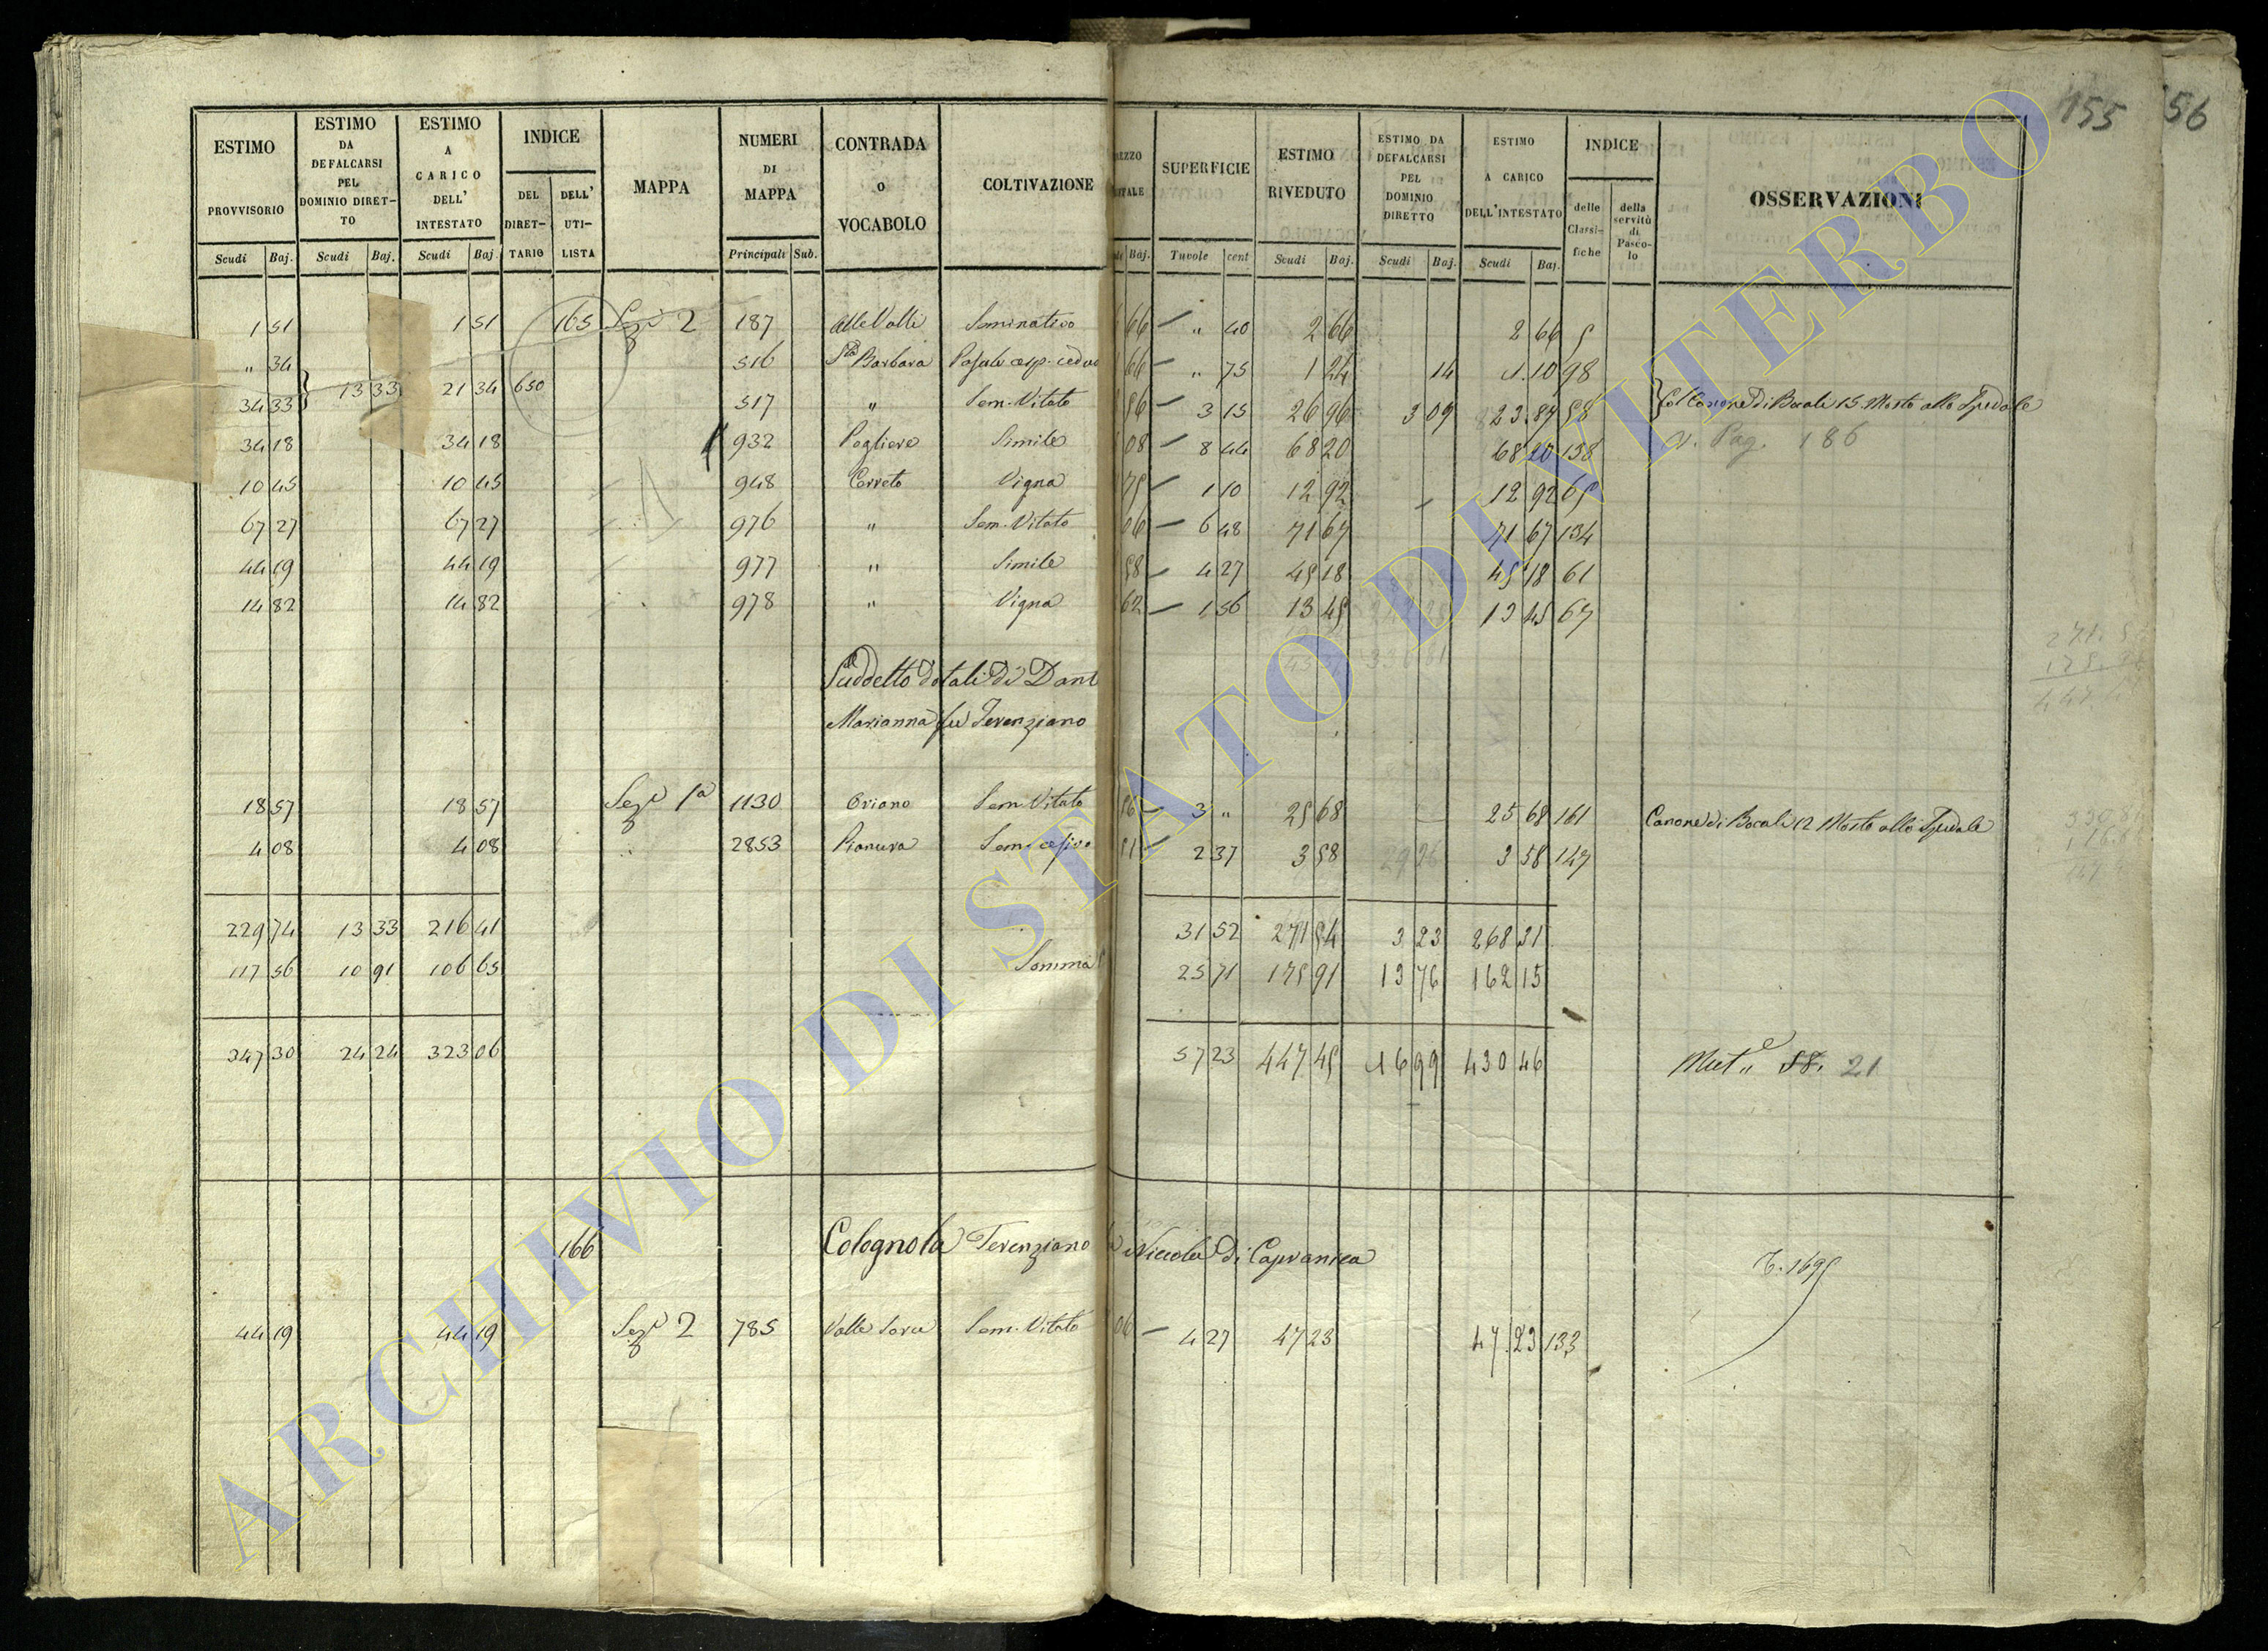 155 56
ESTIMO PROVVISORIO | ESTIMO DA DEFALCARSI PEL DOMINIO DIRETTO | ESTIMO A CARICO DELL' INTESTATO | INDICE DEL DIRETTARIO | DELL' UTILISTA | MAPPA | NUMERI DI MAPPA | CONTRADA O VOCABOLO | COLTIVAZIONE | SUPERFICIE | ESTIMO RIVEDUTO | ESTIMO DA DEFALCARSI PEL DOMINIO DIRETTO | ESTIMO A CARICO DELL'INTESTATO | INDICE delle Classifiche | della servitù di Pascolo | OSSERVAZIONI
Scudi Baj. | Scudi Baj. | Scudi Baj. | Principali Sub. | Baj. | Tavole cent | Scudi Baj. | Scudi Baj. | Scudi Baj.
1 51 | 1 51 | 165 | Sez.e 2 | 187 | Alle Valli | Seminativo | 66 | " 40 | 2 66 | 2 66 | 5
" 34 | 516 | Sta Barbara | 66 | " 75 | 1 24 | 14 | 1.10 | 98
34 33 | 13 33 | 21 34 | 650 | 517 | " | Sem. Vitato | 56 | 3 15 | 26 96 | 3 09 | 23.87 | 58 | Col Canone di Bocali 15 Mosto allo Spedale
34 18 | 34 18 | 932 | Pogliere | Simile | 08 | 8 44 | 68 20 | 68 20 | 138 | v. Pag. 186
10 45 | 10 45 | 948 | Cerreto | Vigna | 75 | 1 10 | 12 92 | 12 92 | 65
67 27 | 67 27 | 976 | " | Sem. Vitato | 06 | 6 48 | 71 67 | 71 67 | 134
44 19 | 44 19 | 977 | " | Simile | 58 | 4 27 | 45 18 | 45 18 | 61
14 82 | 14 82 | 978 | " | Vigna | 62 | 1 56 | 13 45 | 13 45 | 67
Suddetto dotali di Dant
Marianna fu Terenziano
18 57 | 18 57 | Sez.e 1a | 1130 | Oriano | Sem. Vitato | 56 | 3 " | 25 68 | 25 68 | 161 | Canone di Bocali 12 Mosto allo Spedale
4 08 | 4 08 | 2853 | Pianura | 51 | 2 37 | 3 58 | 3 58 | 147
229 74 | 13 33 | 216 41 | 31 52 | 271 54 | 3 23 | 268 31
117 56 | 10 91 | 106 65 | Somma | 25 71 | 175 91 | 13 76 | 162 15
347 30 | 24 24 | 323 06 | 57 23 | 447 45 | 16 99 | 430 46 | 21
166 | Colognola Terenziano Niccola di Capranica | 1695
44 19 | 44 19 | Sez.e 2 | 785 | Sem. Vitato | 06 | 4 27 | 47 23 | 47.23 | 133
ARCHIVIO DI STATO DI VITERBO